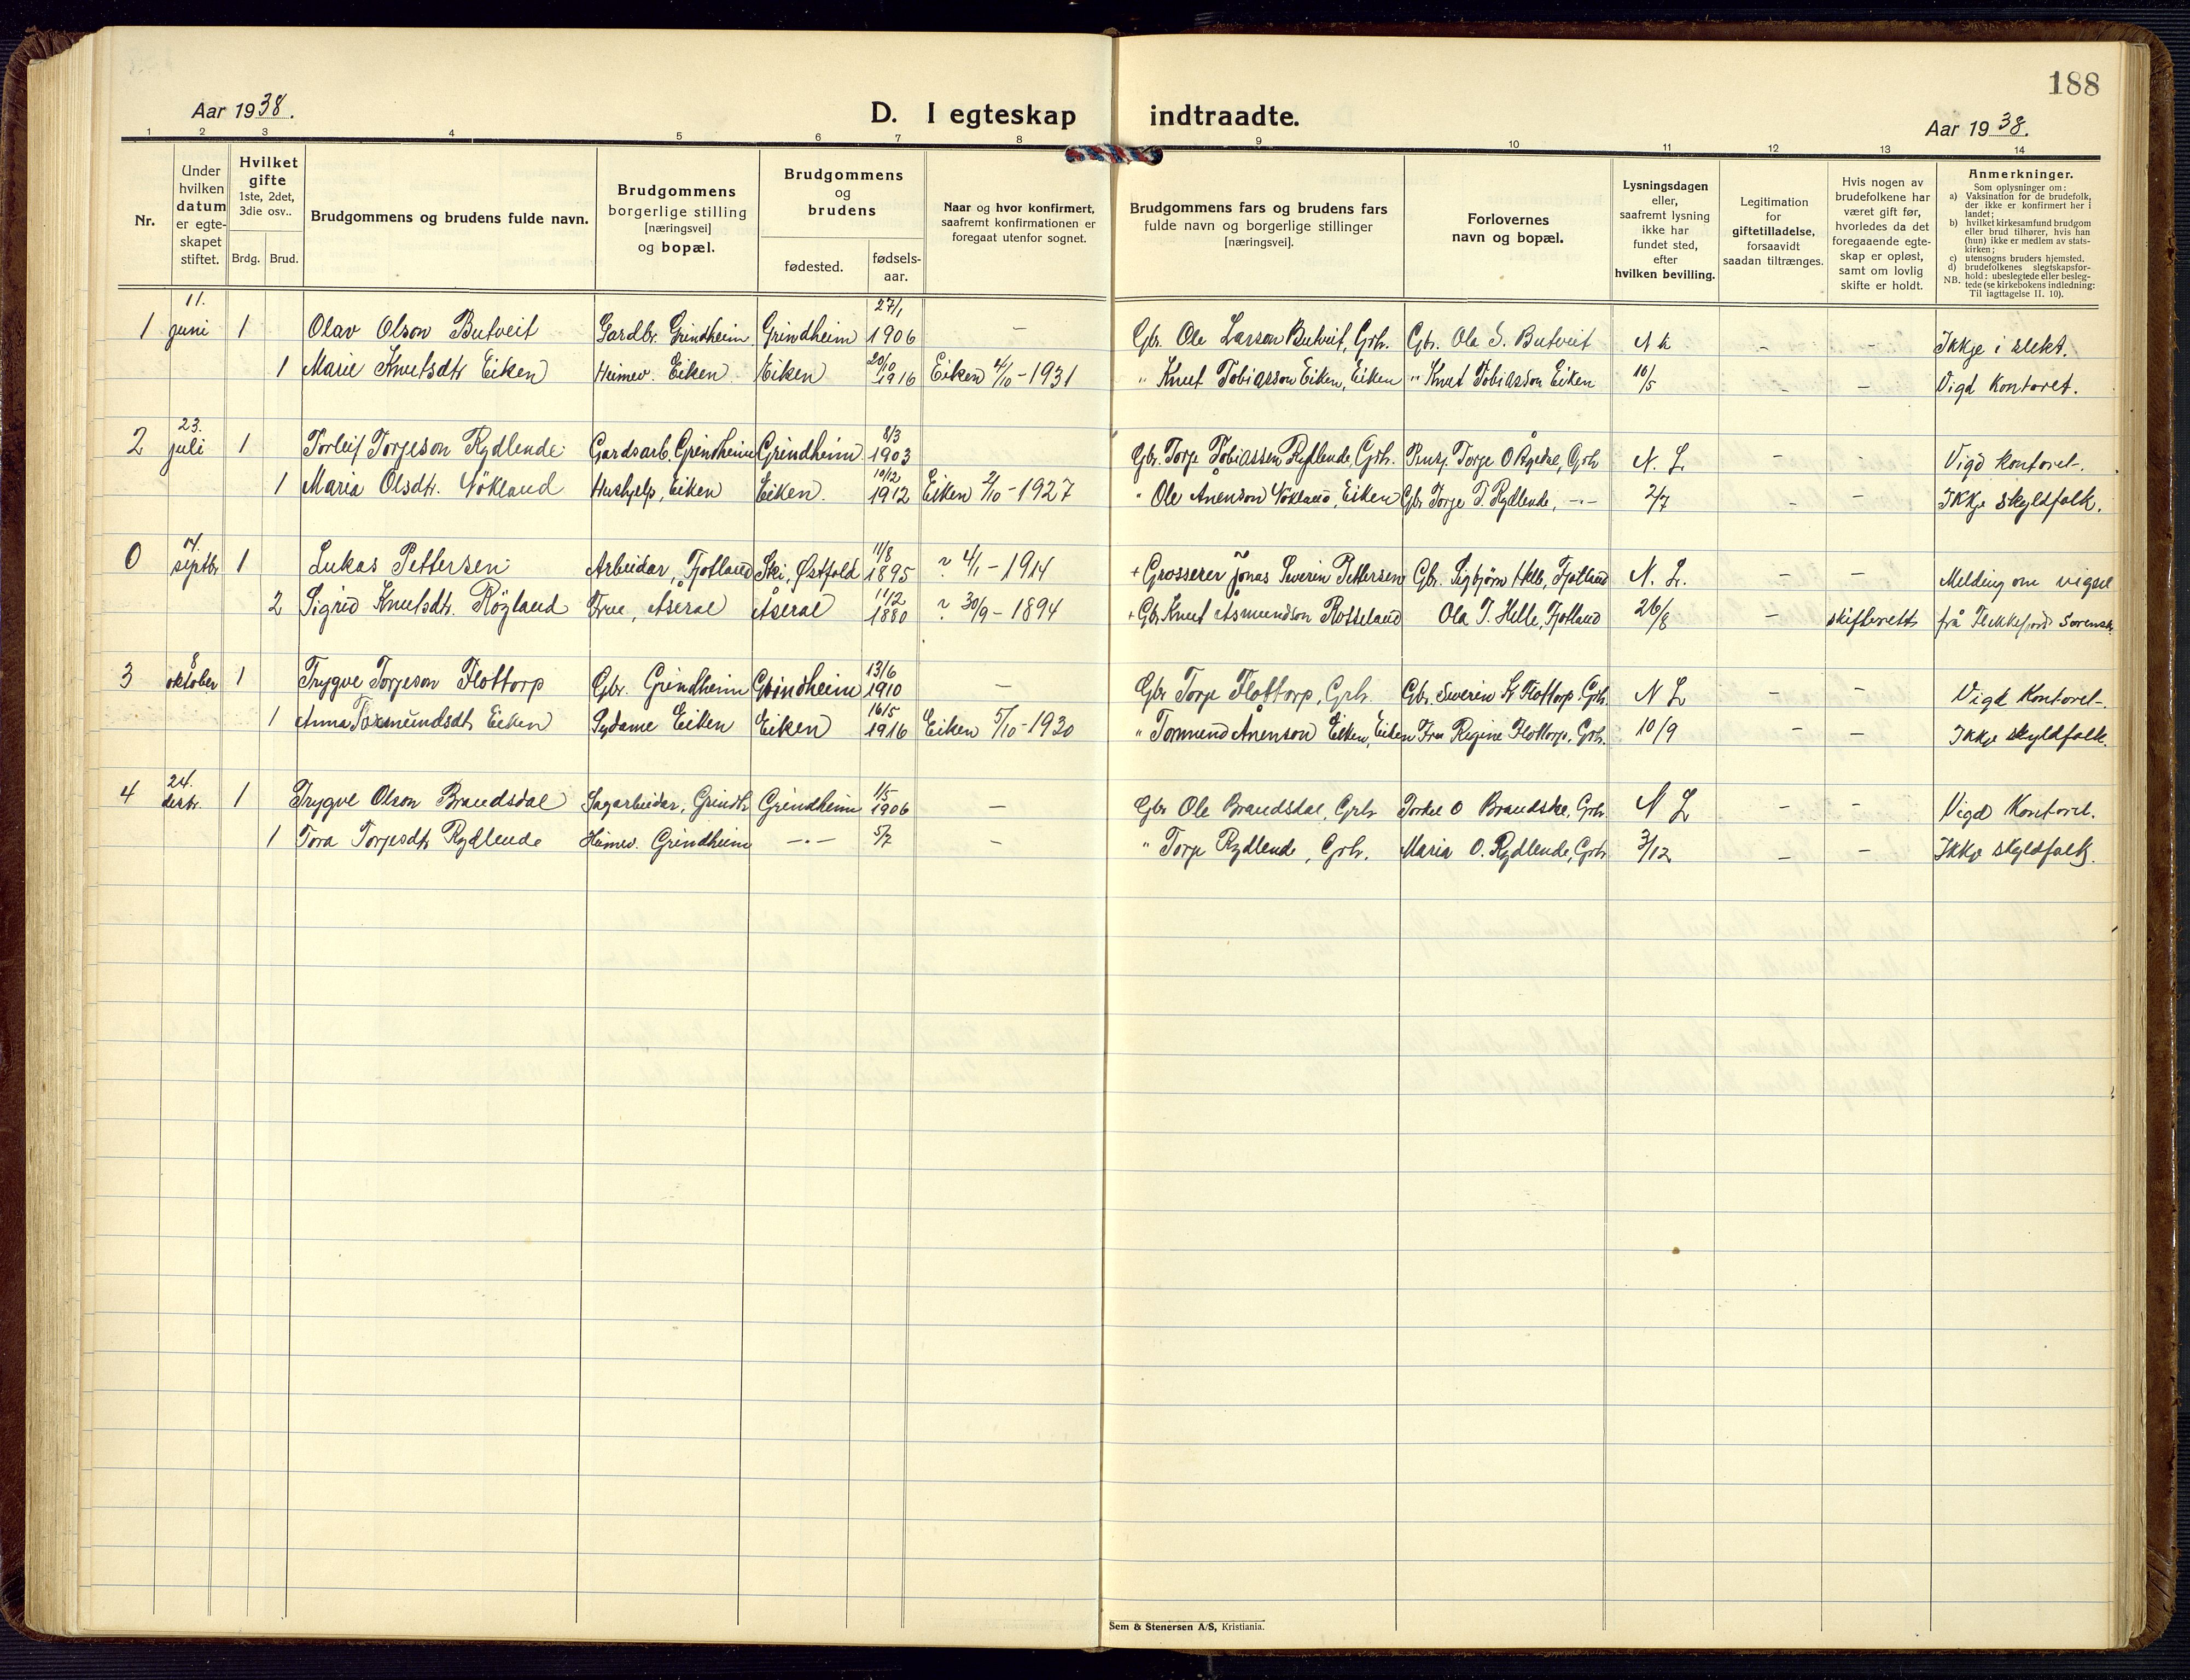 188
Aar 1938.
D. I egteskap indtraadte.
Aar 1938.
1 2 3 4 5 6 7 8 9 10 11 12 13 14
Nr.
Under hvilken datum er egte-skapet stiftet.
Hvilket gifte 1ste, 2det, 3die osv..
Brdg. Brud.
Brudgommens og brudens fulde navn.
Brudgommens borgerlige stilling [næringsvei] og bopæl.
Brudgommens og brudens
fødested. fødsels-aar.
Naar og hvor konfirmert, saafremt konfirmationen er foregaat utenfor sognet.
Brudgommens fars og brudens fars fulde navn og borgerlige stillinger [næringsvei].
Forlovernes navn og bopæl.
Lysningsdagen eller, saafremt lysning ikke har fundet sted, efter hvilken bevilling.
Legitimation for giftetilladelse, forsaavidt saadan tiltrænges.
Hvis nogen av brudefolkene har været gift før, hvorledes da det foregaaende egte-skap er opløst, samt om lovlig skifte er holdt.
Anmerkninger.
Som oplysninger om:
a) Vaksination for de brudefolk, der ikke er konfirmert her i landet;
b) hvilket kirkesamfund brudgom eller brud tilhører, hvis han (hun) ikke er medlem av stats-kirken;
c) utensogns bruders hjemsted.
d) brudefolkenes slegtskapsfor-hold: ubeslegtede eller besleg-tede (se kirkebokens indledning:
NB. Til iagttagelse II. 10).
1 11. juni 1 Olav Olson Butveit Gardbr. Grindheim Grindheim 27/1 1906 — Gbr. Ole Larson Butveit, Grh. Gbr. Ola S. Butveit – – Ikkje i slekt.
1 Marie Knutsdtr Eiken Heimev. Eiken Eiken 20/10 1916 Eiken /10-1931 " Knut Tobiasson Eiken, Eiken " Knut Tobiasson Eiken 10/5 – – Vigd Kontoret.
2 23. juli 1 Torleif Torjeson Rydlende Gardsarb. Grindheim Grindheim 8/3 1903 Gbr. Torje Tobiassen Rydlende, Grh. Torje O , Grh N. L. – - Vigd kontoret.
1 Maria Olsdtr. Vökland Hushjelp, Eiken Eiken. 10/12 1912 Eiken 2/10-1927 " Ole Ånenson Vökland, Eiken Gbr Torje T. Rydlende, -"- 2/7 – – Ikkje skyldfolk.
0 septbr 1 Lukas Pettersen Arbeidar, Fjotland Ski, Østfold 11/8 1895 ? 4/1-1914 + Grosserer Jonas Severin Pettersen Gbr. Sigbjörn Helle, Fjotland N. L. – – Melding om vigsel
2 Sigrid Knutsdtr. Röyland Frue, Åseral Åseral 14/2 1880 ? 30/9-1894 + Gbr Knut Åsmundson Rosseland Ola T. Helle, Fjotland 26/8 – skifterett frå Flekkefjord Sorensk.
3 8 oktober 1 Trygve Torjeson Flottorp Gbr. Grindheim Grindheim 13/6 1910 — Gbr Torje Flottorp, Grh. Gbr. Severin Flottorp. Grh. N L – – Vigd Kontoret.
1 Anna Tormundsdtr Eiken Sydame Eiken Eiken 16/5 1916 Eiken 5/10-1930 " Tormund Ånenson Eiken, Eiken Fru Regine Flottorp, Grh. 10/9 – – Ikkje skyldfolk.
4 24. desbr. 1 Trygve Olson Brandsdal Sagarbeidar, Grindh Grindheim 1/5 1906 — Gbr Ole Brandsdal, Grh Torkel O Brandsdal, Grh. N L – – Vigd Kontoret.
1 Tora Torjesdtr Rydlende Heimev. Grindheim -"- 5/7 — " Torje Rydlende, Grh. Maria O. Rydlende, Grh 3/12 – – Ikkje skyldfolk.
Sem & Stenersen A/S, Kristiania.